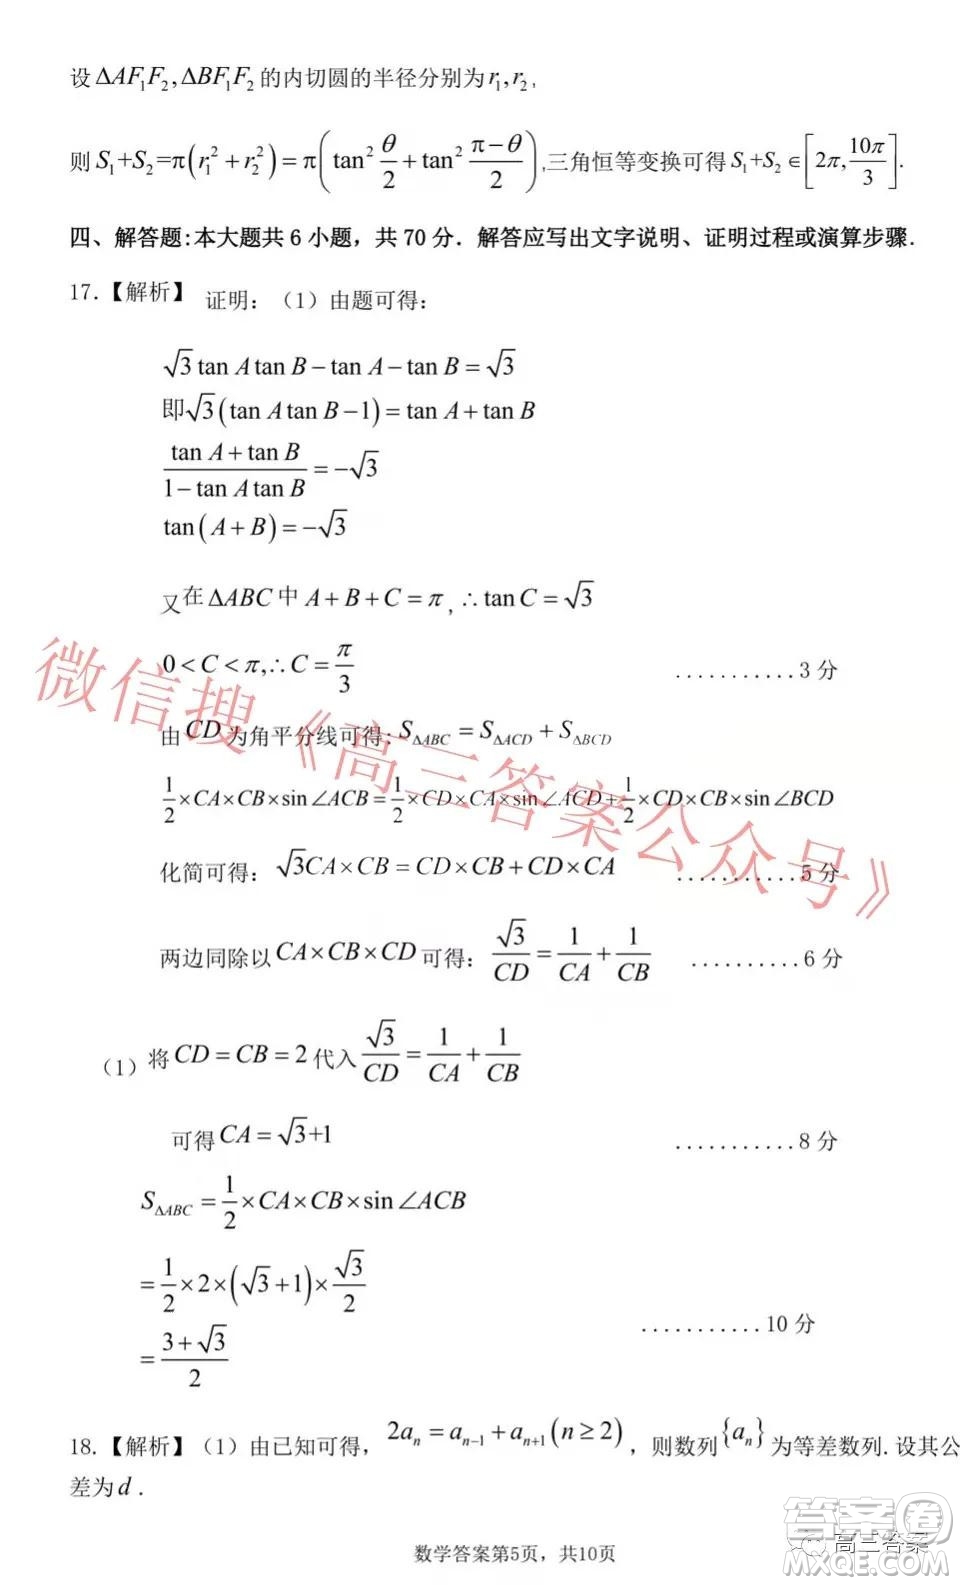 设 ΔAF₁F₂, ΔBF₁F₂ 的内切圆的半径分别为 r₁, r₂,
则 S₁+S₂=π(r₁²+r₂²)=π(tan² θ/2 + tan² (π−θ)/2),三角恒等变换可得 S₁+S₂∈[2π, 10π/3].
四、解答题:本大题共 6 小题，共 70 分．解答应写出文字说明、证明过程或演算步骤．
17.【解析】 证明：（1）由题可得：
√3 tan A tan B − tan A − tan B = √3
即√3(tan A tan B −1)= tan A + tan B
(tan A + tan B)/(1− tan A tan B) = −√3
tan(A + B)= −√3
又在 ΔABC 中 A + B + C = π , ∴ tan C = √3
0 < C < π, ∴ C = π/3 ...........3 分
由 CD 为角平分线可得: S_ΔABC = S_ΔACD + S_ΔBCD
1/2 ×CA×CB×sin∠ACB = 1/2 ×CD×CA×sin∠ACD + 1/2 ×CD×CB×sin∠BCD
化简可得： √3CA×CB = CD×CB + CD×CA ...........5 分
两边同除以 CA×CB×CD 可得： √3/CD = 1/CA + 1/CB ..........6 分
（1）将 CD = CB = 2 代入 √3/CD = 1/CA + 1/CB
可得 CA = √3+1 ...........8 分
S_ΔABC = 1/2 ×CA×CB×sin∠ACB
= 1/2 ×2×(√3+1)× √3/2
= (3+√3)/2 ...........10 分
18.【解析】（1）由已知可得， 2aₙ = aₙ₋₁ + aₙ₊₁(n ≥ 2) ，则数列{aₙ} 为等差数列.设其公
差为 d .
数学答案第5页，共10页
微信搜《高三答案公众号》
答案卷
高三答案
MXQE.COM